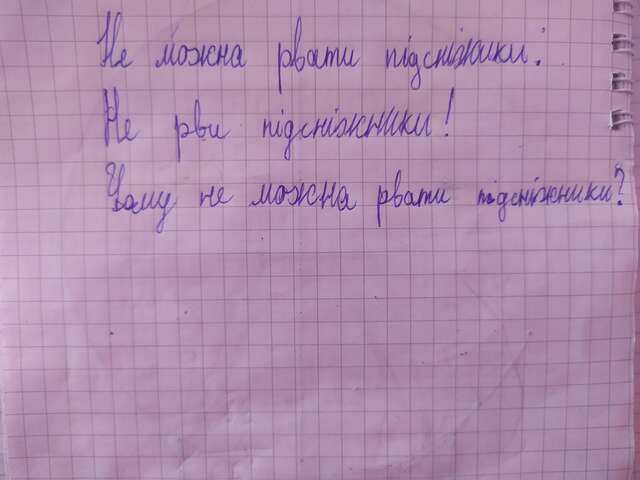 Не можна рвати підсніжники.
Не рви підсніжники!
Чому не можна рвати підсніжники?